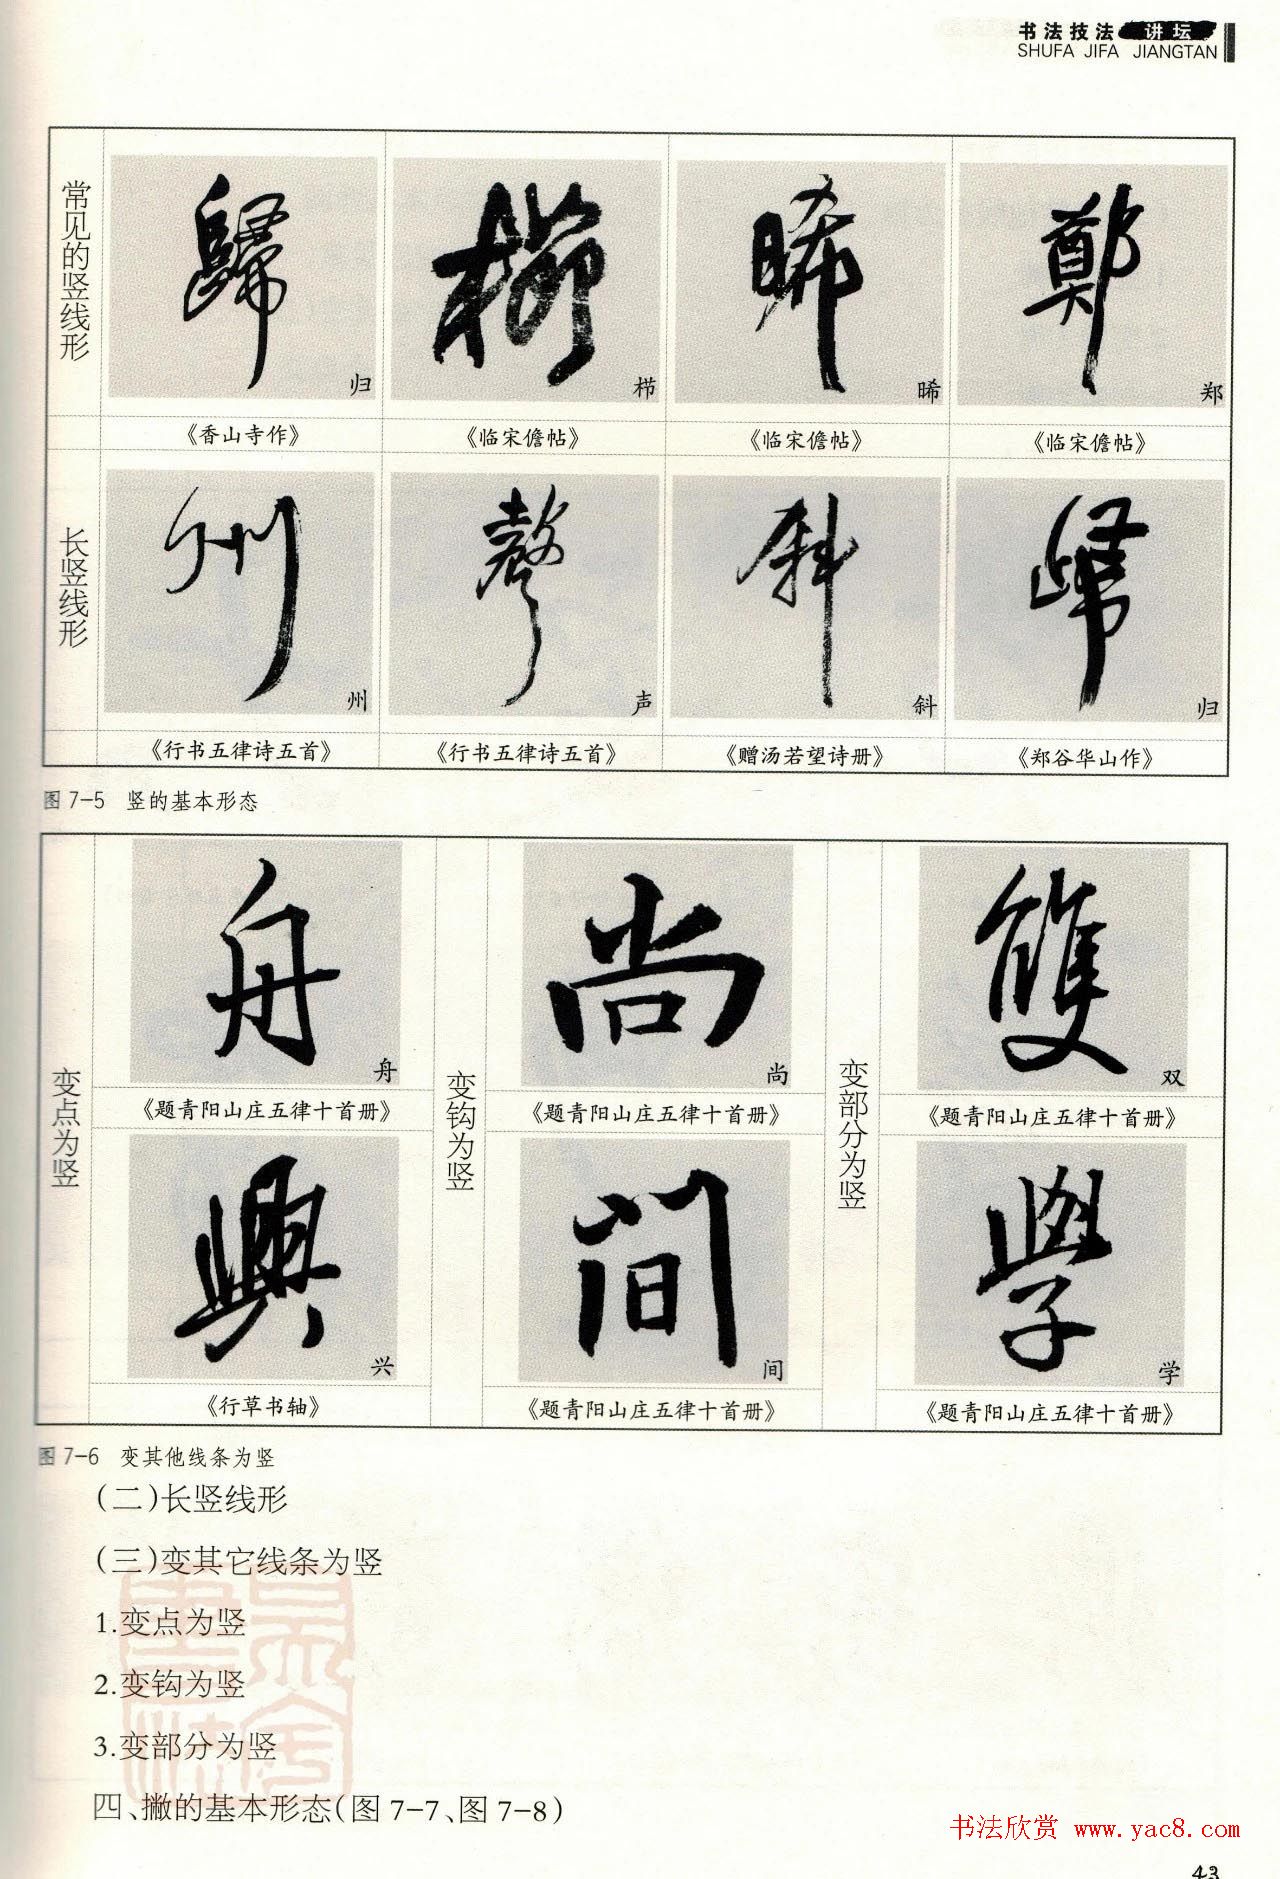 书法技法 讲坛
SHUFA JIFA JIANGTAN
常见的竖线形
歸 櫛 晞 鄭
归 栉 晞 郑
《香山寺作》 《临宋儋帖》 《临宋儋帖》 《临宋儋帖》
长竖线形
州 聲 斜 歸
州 声 斜 归
《行书五律诗五首》 《行书五律诗五首》 《赠汤若望诗册》 《郑谷华山作》
图7-5 竖的基本形态
变点为竖
舟
舟
《题青阳山庄五律十首册》
興
兴
《行草书轴》
变钩为竖
尚
尚
《题青阳山庄五律十首册》
间
间
《题青阳山庄五律十首册》
变部分为竖
雙
双
《题青阳山庄五律十首册》
學
学
《题青阳山庄五律十首册》
图7-6 变其他线条为竖
(二)长竖线形
(三)变其它线条为竖
1.变点为竖
2.变钩为竖
3.变部分为竖
四、撇的基本形态(图7-7、图7-8)
书法欣赏 www.yac8.com
43